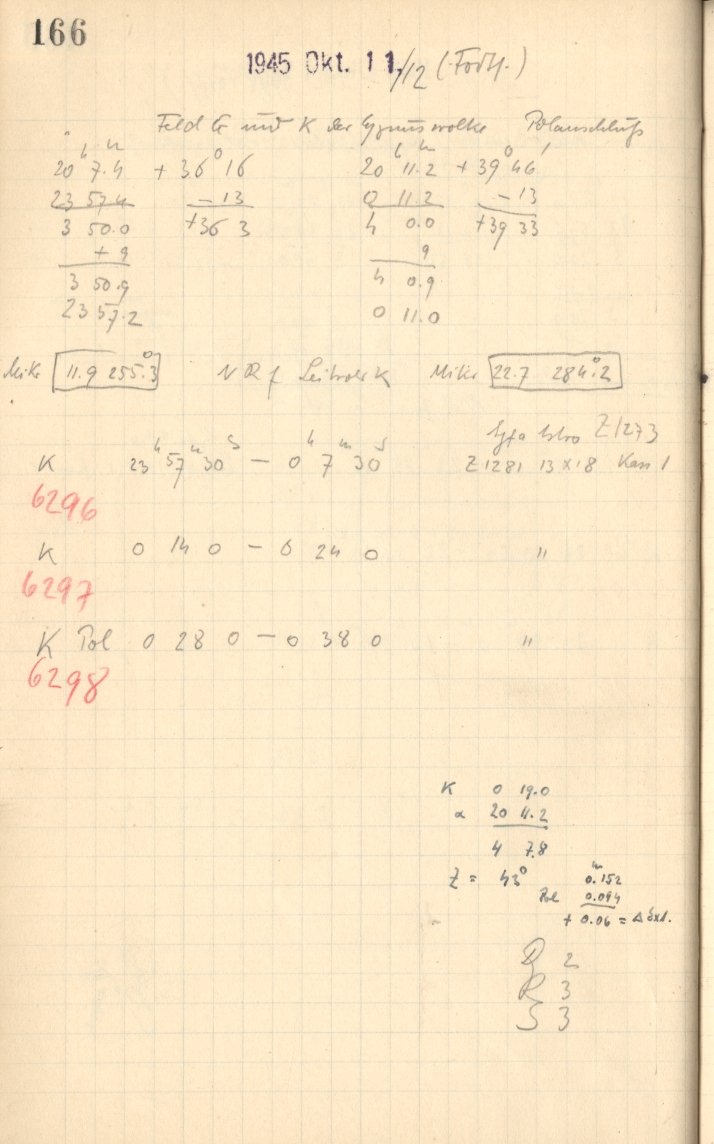 166
1945 Okt. 11./12 (Forts.)
Feld G und K der Cygnuswolke Polanschluß
20 h 7.4 m + 36° 16 20 h 11.2 m + 39° 46'
23 57.4 - 13 0 11.2 - 13
3 50.0 +36 3 4 0.0 +39 33
+ 9 9
3 50.9 4 0.9
23 57.2 0 11.0
Mikr 11.9 255.°3 NRf Leitrohr K Mikr 22.7 284.°2
Agfa Astro Z1273
K 23 h 57 m 30 s – 0 h 7 m 30 s Z1281 13 x 18 Kass 1
6296
K 0 14 0 – 0 24 0 "
6297
K Pol 0 28 0 – 0 38 0 "
6298
K 0 19.0
α 20 11.2
4 7.8
Z = 43° 0.152 m
Pol 0.094
+ 0.06 = Δ Ext.
D 2
R 3
S 3